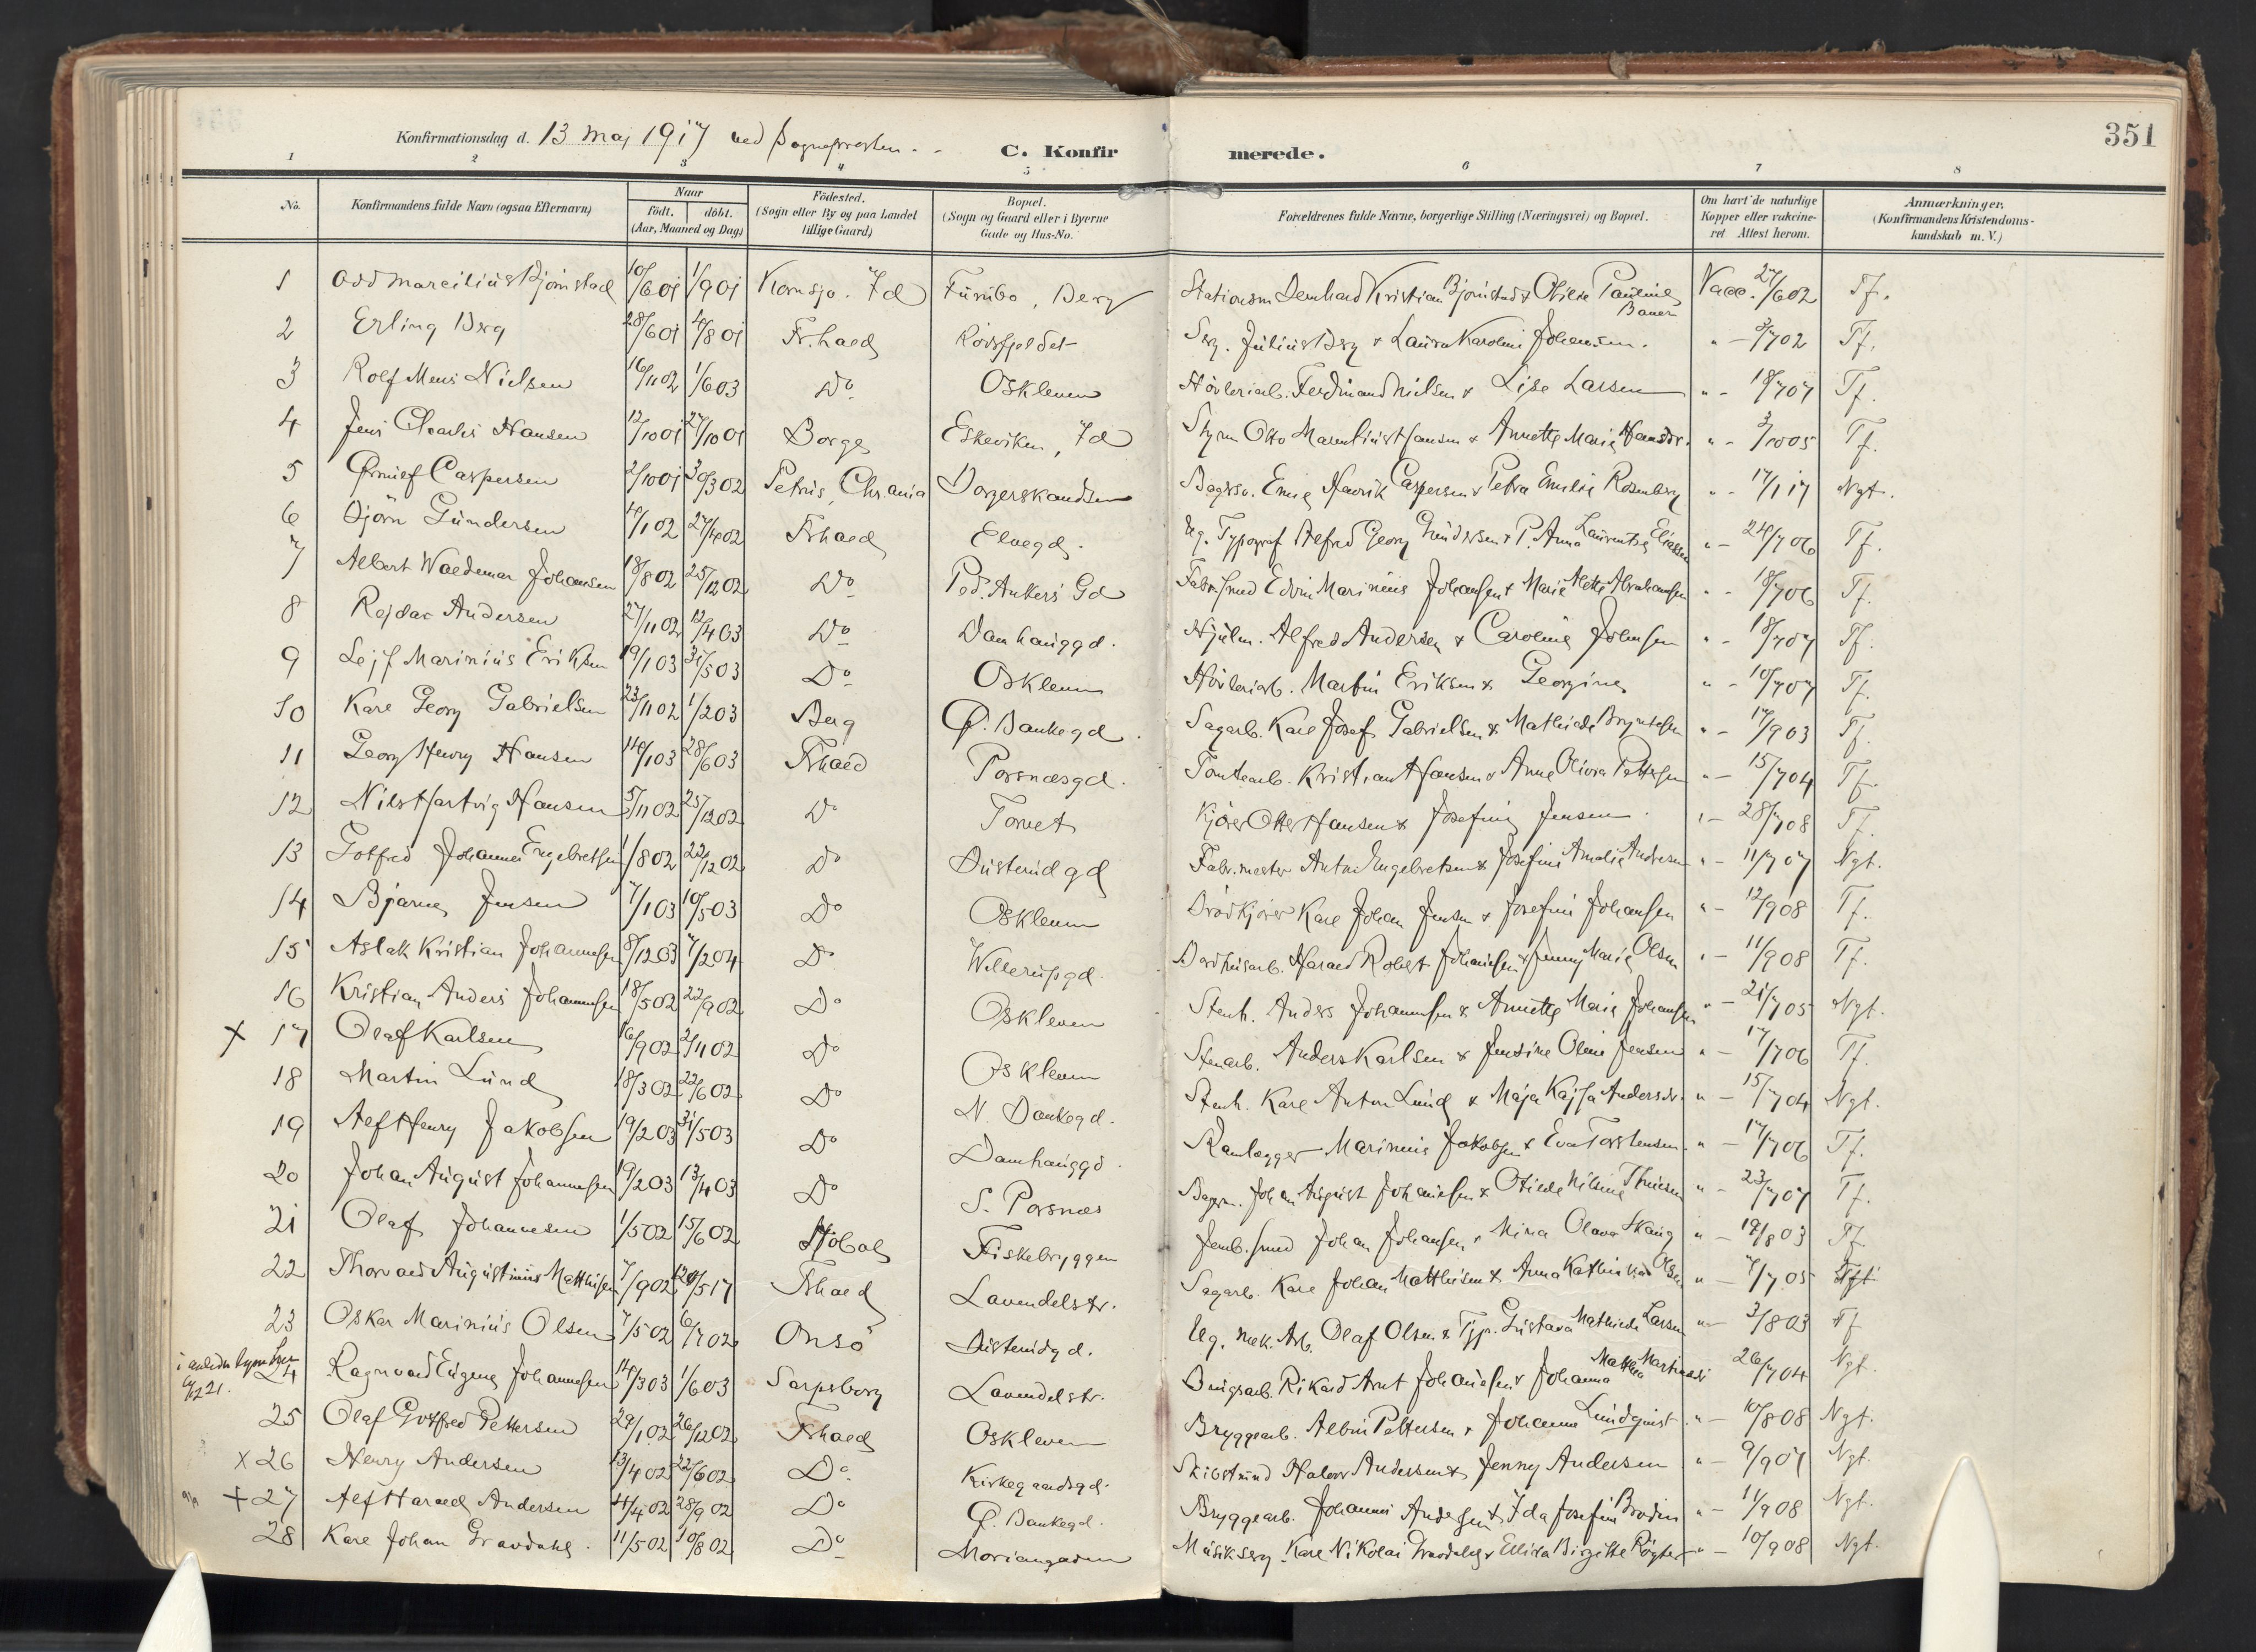 351
Konfirmationsdag d. 13 Maj 1917 ved Sognepresten
C. Konfirmerede.
1 2 3 4 5 6 7 8
No. Konfirmandens fulde Navn (ogsaa Efternavn) Naar født. døbt. (Aar, Maaned og Dag) Fødested. (Sogn eller By og paa Landet tillige Gaard) Bopæl. (Sogn og Gaard eller i Byerne Gade og Hus-No. Forældrenes fulde Navne, borgerlige Stilling (Næringsvei) og Bopæl. Om havt de naturlige Kopper eller vakcineret Attest herom. Anmærkninger. (Konfirmandens Kristendomskundskab m. V.)
1 Odd Marcilius Bjørnstad 10/6 01 1/9 01 Kornsjø. Id Furubo, Berg Stationsm Bernhard Kristian Bjørnstad & Otilie Pauline Bauer Vacc. 27/6 02 Tf.
2 Erling Berg 28/6 01 4/8 01 Fr.hald Rødsfjeldet Serg. Julius Berg & Laura Karoline Johansen. " - 3/7 02 Tf.
3 Rolf Mens Nielsen 16/11 02 1/6 03 Do Oskleven Høvleriarb. Ferdinand Nielsen & Lise Larsen " - 18/7 07 Tf.
4 Jens Charles Hansen 12/10 01 27/10 01 Borge Eskeviken, Id Styrm Otto Hansen & Annette Marie Hansdr. " - 3/10 05 Tf.
5 Caspersen 2/10 01 30/3 02 Petrus, Chr.ania Borgerskandsen Henrik Caspersen & Petra Emilie Rosenberg " - 17/1 17 Ngt.
6 Bjørn Gundersen 4/1 02 27/4 02 Frhald Elvegd. Ug. Typograf Alfred Georg Gundersen & P. Anna Laurentse Eliassen " - 24/7 06 Tf.
7 Albert Waldemar Johansen 18/8 02 25/12 02 Do Ped. Ankers Gd Edvin Marinius Johansen & Marie Mette Abrahamsen " - 18/7 06 Tf.
8 Rejdar Andersen 27/11 02 12/4 03 Do Damhauggd. Hjulm. Alfred Andersen & Caroline Johnsen " - 18/7 07 Tf.
9 Lejf Marinius Eriksen 19/1 03 31/5 03 Do Oskleven Høvleriarb. Martin Eriksen & Georgine " - 10/7 07 Tf.
10 Karl Georg Gabrielsen 23/11 02 1/2 03 Berg Ø. Bankegd. Sagarb. Karl Josef Gabrielsen & Mathilde Bryntesen " - 17/9 03 Tf.
11 Georg Henry Hansen 14/1 03 28/6 03 Frhald Porsnæsgd. Tomtearb. Kristian Hansen & Anne Olivia Pettersen " - 15/7 04 Tf.
12 Nils Hartvig Hansen 5/11 02 25/12 02 Do Torvet Kjører Otter Hansen & Josefine Jensen. " - 28/7 08 Tf.
13 Gotfred Johannes Engebretsen 1/8 02 22/12 02 Do Busterudgd Fabr.mester Anton Engebretsen & Josefine Amalie Andresen " - 11/7 07 Ngt.
14 Bjarne Jensen 7/1 03 10/5 03 Do Oskleven Brødkjører Karl Johan Jensen & Josefine Johansen " - 12/9 08 Tf.
15 Aslak Kristian Johannesen 8/12 03 7/2 04 Do Willerupgd. Harald Robert Johannesen & Jenny Marie Olsen " - 11/9 08 Tf.
16 Kristian Anders Johannesen 18/5 02 22/9 02 Do Oskleven Stenh. Anders Johannesen & Annette Marie Johansen " - 21/7 05 Ngt.
x 17 Olaf Karlsen 16/9 02 2/11 02 Do Oskleven Stenarb. Anders Karlsen & Jensine Oline Jensen " - 17/7 06 Tf.
18 Martin Lund 18/3 02 22/6 02 Do N. Bankegd. Stenh. Karl Anton Lund & Maja Kajsa Andersdr. " - 15/7 04 Ngt.
19 Alf Henry Jakobsen 19/2 03 31/5 03 Do Damhauggd. Ramlægger Marinius Jakobsen & Eva Torstensen " - 17/7 06 Tf.
20 Johan August Johannesen 19/2 03 13/4 03 Do S. Porsnæs Johan August Johannesen & Otilde Nilsine Thuesen " - 23/7 07 Tf.
21 Olaf Johannesen 1/5 02 15/6 02 Hobøl Fiskebryggen Jernb.smed Johan Johansen & Mina Olava Skaug " - 19/8 03 Tf
22 Thorvald Augustinius Mathisen 7/9 02 /5 17 Frhald Lavendelstr. Sagarb. Karl Johan Matthisen & Anna Kathinka Olsen " - 7/7 05
23 Oskar Marinius Olsen 7/5 02 6/7 02 Onsø Busterudgd. Ug. Mek. Arb. Olaf Olsen & Gustava Mathilde Larsen " - 3/8 03 Tf
24 Ragnvald Eugen Johannesen 14/3 03 1/6 03 Sarpsborg Lavendelstr. Rikard Arnt Johannesen & Johanna Mathea 26/7 04 Ngt.
25 Olaf Gotfred Pettersen 29/1 02 26/12 02 Frhald Oskleven Bryggearb. Albin Pettersen & Johanne Lundquist " - 10/8 08 Ngt.
x 26 Henry Andersen 13/4 02 22/6 02 Do Kirkegaardsgd. Skibstømd Halvor Andersen & Jenny Andersen " - 9/9 07 Ngt.
+ 27 Alf Harald Andersen 4/4 02 28/9 02 Do Ø. Bankegd. Bryggearb. Johannes Andersen & Ida Josefine Brodin " - 11/9 08 Ngt.
28 Karl Johan Gravdahl. 11/5 02 10/8 02 Do Moriangaden Musikserg. Karl Nikolai Gravdahl & Ellida Birgitte " - 10/9 08 Ngt.